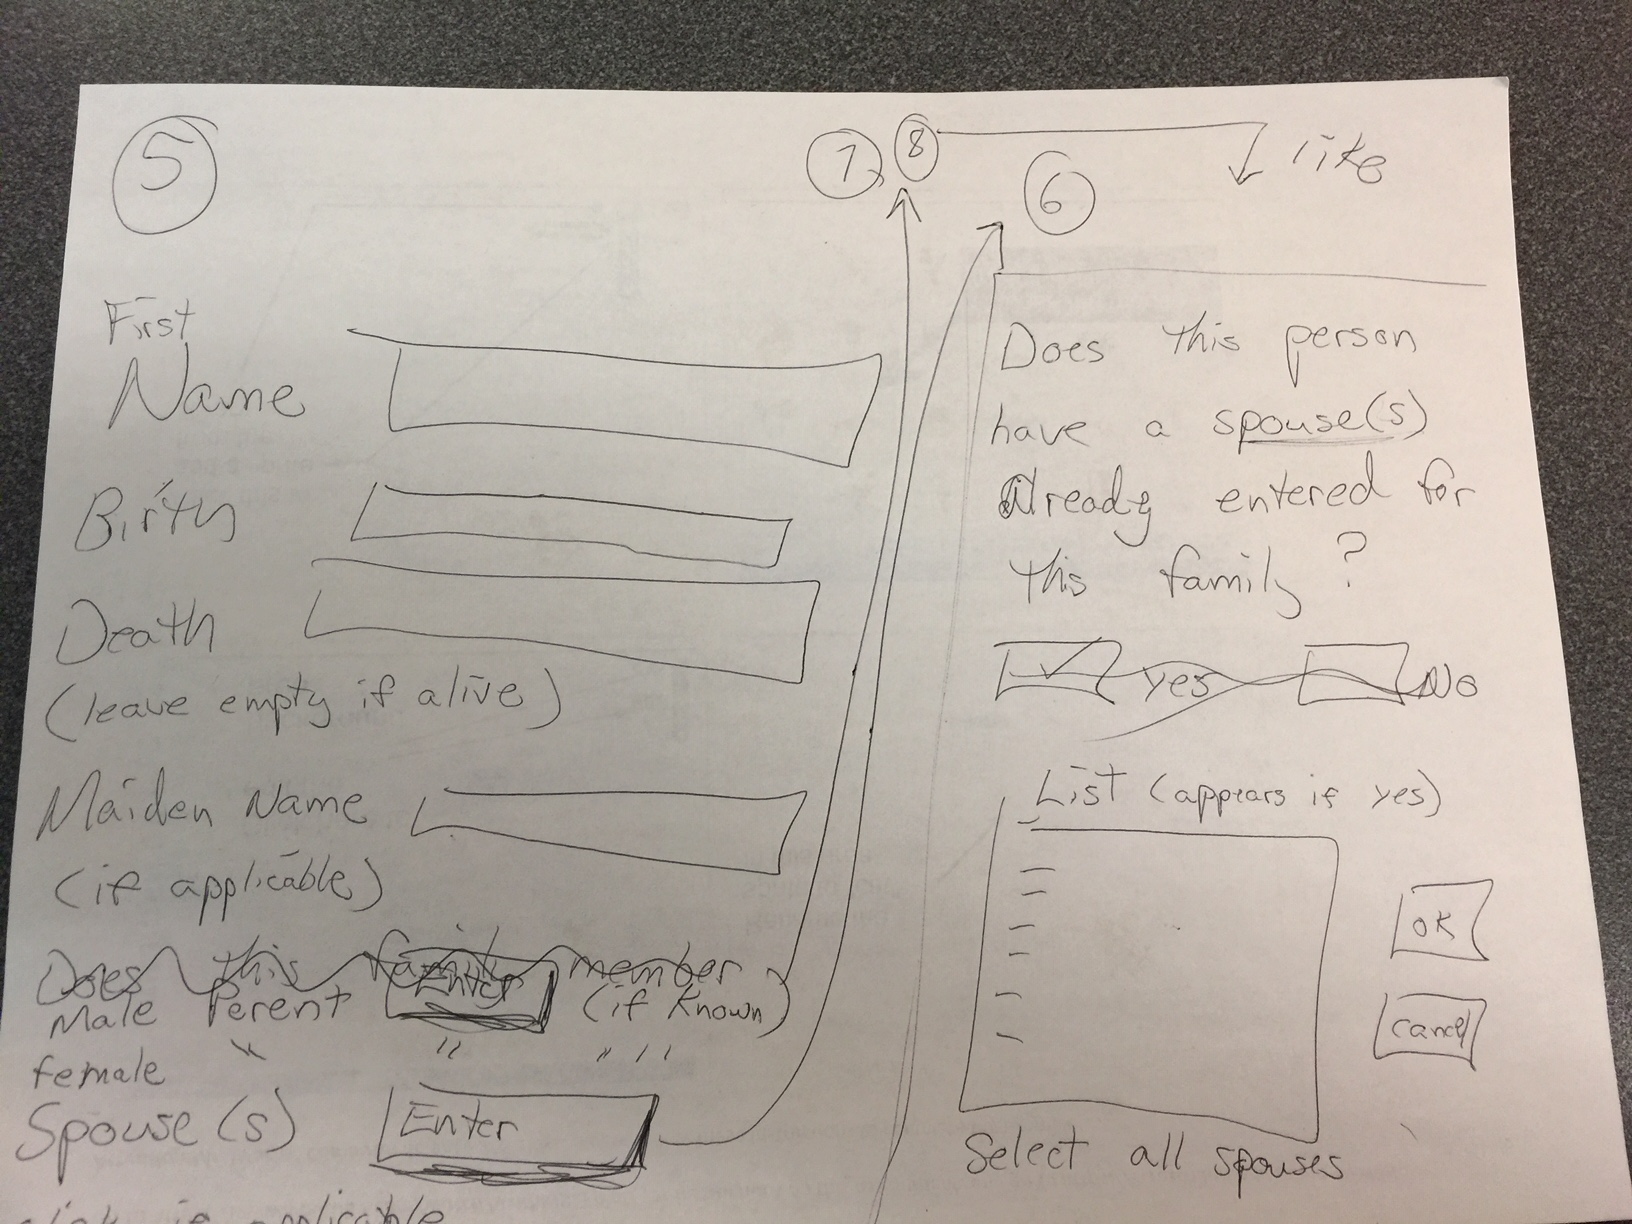 5
First
Name
Birth
Death
(leave empty if alive)
Maiden Name
(if applicable)
Does this family member
Male Perent Enter (if known)
female " " " " "
Spouse(s) Enter
click if applicable
7, 8 like
6
Does this person
have a spouse(s)
Already entered for
this family?
Yes No
List (appears if yes)
OK
Cancel
Select all spouses